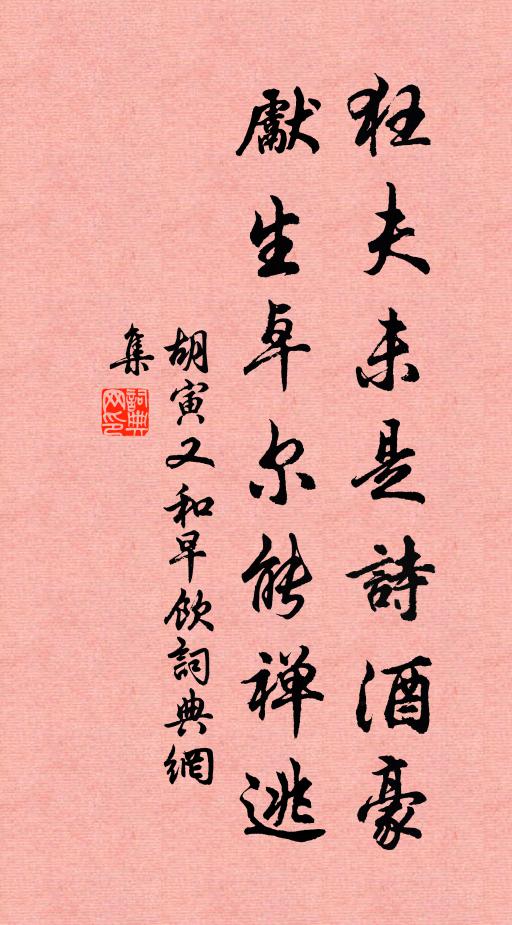 狂夫未是詩酒豪
獻生卓尔能禅逃
胡寅又和早飲詞典網
集
詞典
网印